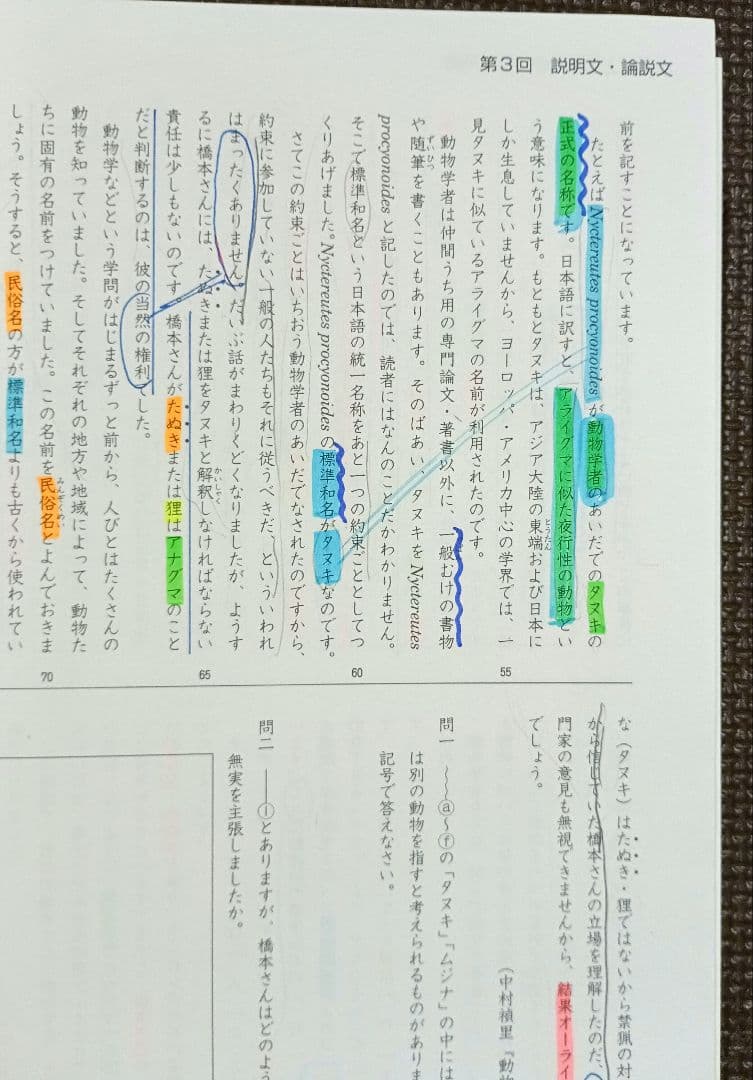 第3回 説明文・論説文
前を記すことになっています。
たとえば Nyctereutes procyonoides が動物学者のあいだでのタヌキの
正式の名称です。日本語に訳すと、アライグマに似た夜行性の動物とい
う意味になります。もともとタヌキは、アジア大陸の東端および日本に
とうたん
しか生息していませんから、ヨーロッパ・アメリカ中心の学界では、一
見タヌキに似ているアライグマの名前が利用されたのです。
55
動物学者は仲間うち用の専門論文・著書以外に、一般むけの書物
や随筆を書くこともあります。そのばあい、タヌキを Nyctereutes
ずいひつ
procyonoides と記したのでは、読者にはなんのことだかわかりません。
そこで標準和名という日本語の統一名称をあと一つの約束ごととしてつ
60
くりあげました。Nyctereutes procyonoides の標準和名がタヌキなのです。
さてこの約束ごとはいちおう動物学者のあいだでなされたのですから、
約束に参加していない一般の人たちもそれに従うべきだ、といういわれ
はまったくありません。だいぶ話がまわりくどくなりましたが、ようす
るに橋本さんには、たぬきまたは狸をタヌキと解釈しなければならない
かいしゃく
65
責任は少しもないのです。橋本さんがたぬきまたは狸はアナグマのこと
だと判断するのは、彼の当然の権利でした。
動物学などという学問がはじまるずっと前から、人びとはたくさんの
動物を知っていました。そしてそれぞれの地方や地域によって、動物た
ちに固有の名前をつけていました。この名前を民俗名とよんでおきま
みんぞくめい
70
しょう。そうすると、民俗名の方が標準和名よりも古くから使われてい
な（タヌキ）はたぬき・狸ではないから禁猟の対
から信じていた橋本さんの立場を理解したのだ、
門家の意見も無視できませんから、結果オーライ
でしょう。
（中村禎里『動物
問一 〜〜ⓐ〜ⓕの「タヌキ」「ムジナ」の中には
は別の動物を指すと考えられるものがありま
記号で答えなさい。
問二 ――①とありますが、橋本さんはどのよう
無実を主張しましたか。